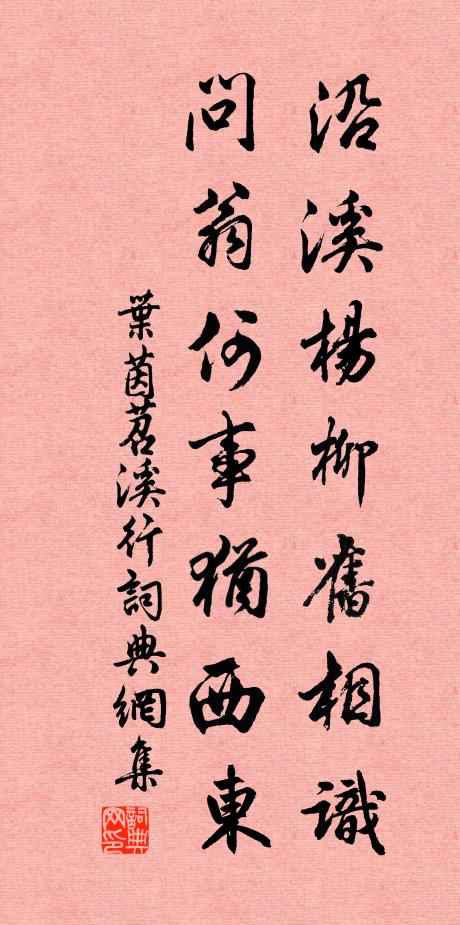 沿溪楊柳舊相識
問翁何事猶西東
葉茵苕溪行詞典網集
詞典网印